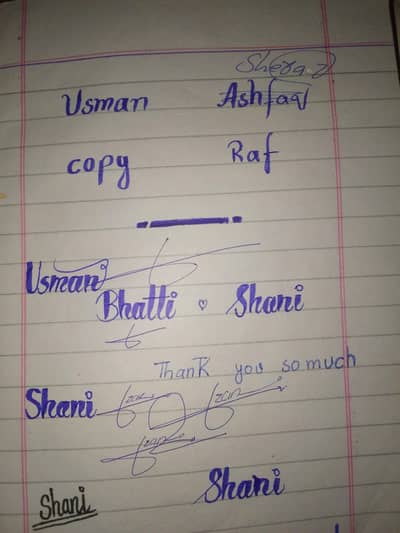 Usman Ashfaq
copy Raf
Usman
Bhatti Shani
Thank you so much
Shani
Shani
Shani